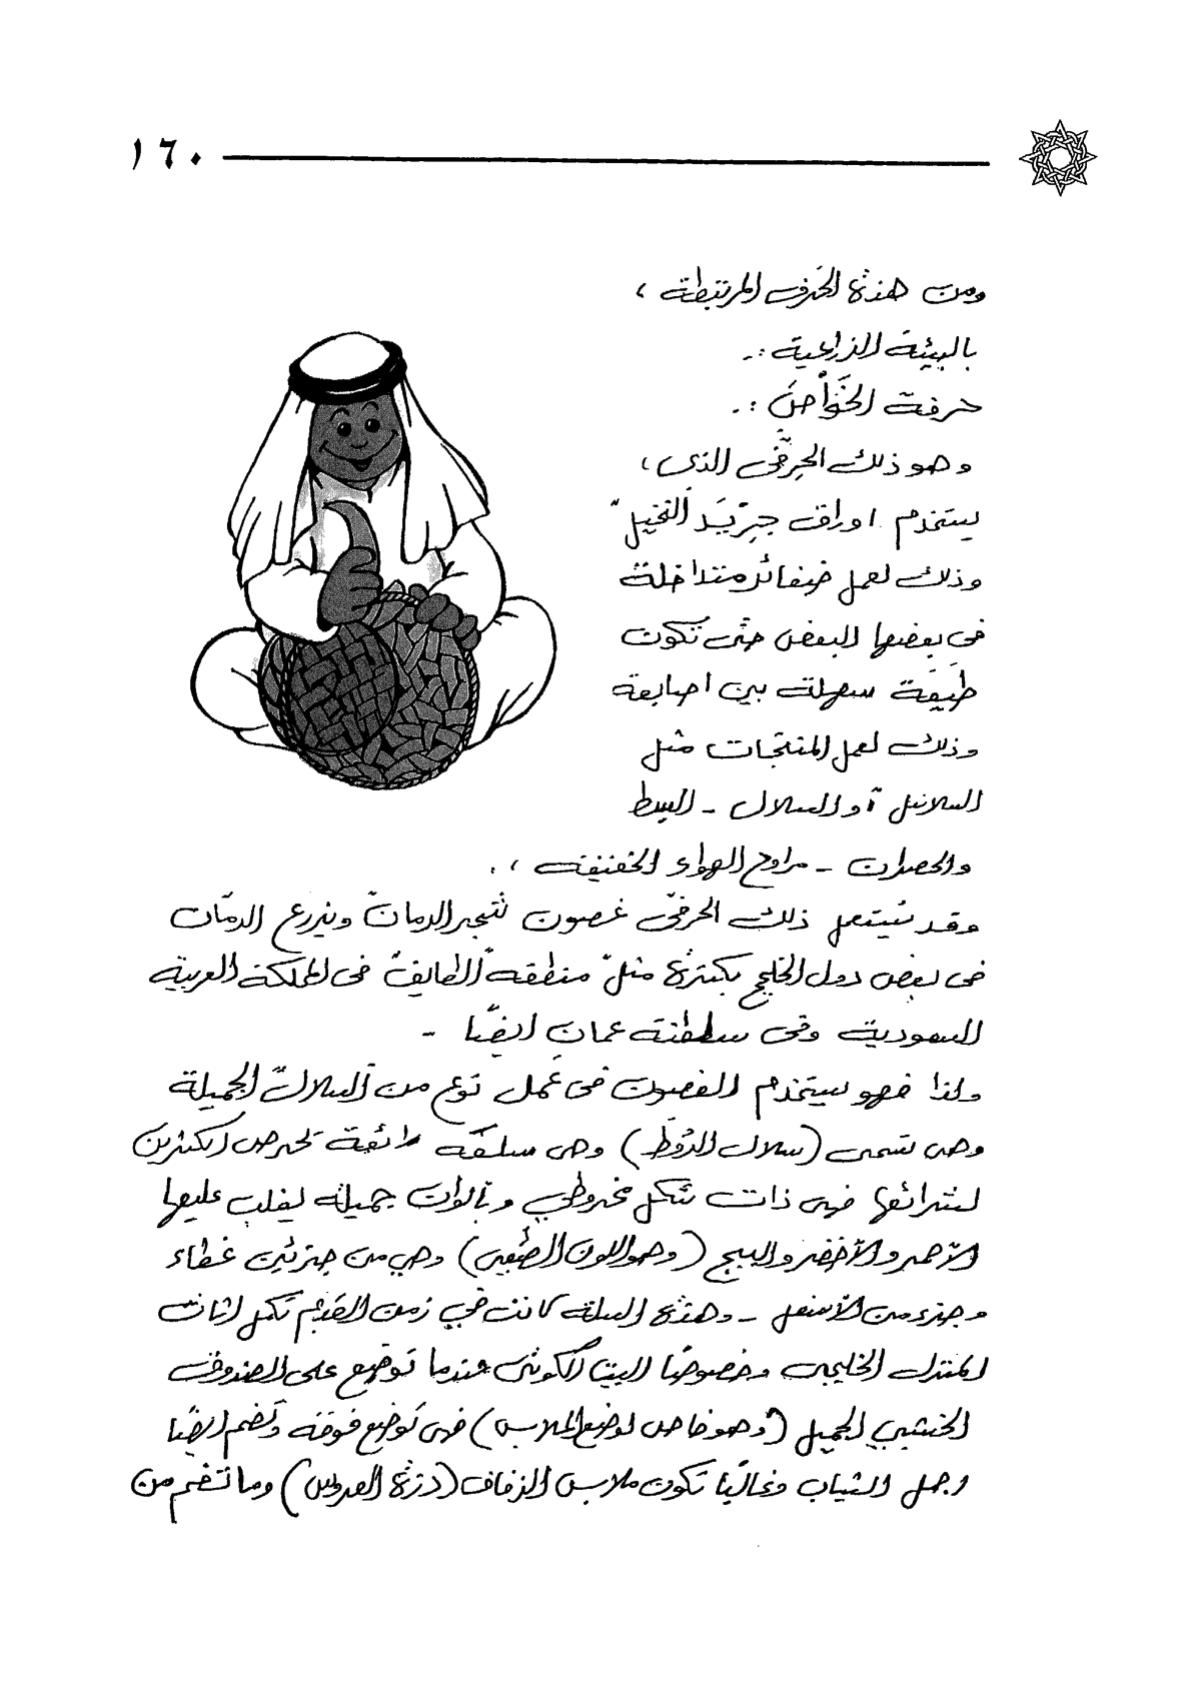 ١٦٠
ومن هذه الحرف المرتبطة ،
بالبيئة الزراعية :ـ
حرفة الخَوَّاص :ـ
وهو ذلك الحِرَفى الذى ،
يستخدم اوراق جريد النخيل
وذلك لعمل ضفائر متداخلة
فى بعضها البعض حتى تكون
طَيِّعَة سهلة بين اصابعة
وذلك لعمل المنتجات مثل
السلاسل أو السلال ـ البسط
والحصران ـ مراوح الهواء الخفيفه ،.
وقد يستعمل ذلك الحرفى غصون شجر الرمان ويزرع الرمّان
فى بعض دول الخليج بكثرة مثل منطقة الطايف فى المملكة العربية
السعودية وفى سلطنة عمان ايضًا ـ
ولذا فهو يستخدم الغصون فى عمل نوع من السلال الجميلة
وهى تسمى (سلال ) وهى سلـة رائعة يحرص الكثيرين
لشرائها فهى ذات شكل مخروطى وبألوان جميلة يغلب عليها
الأحمر والأخضر والبيج (وهو اللون الطبيعى) وهي من جزئين غطاء
وجزء من الأسفل ـ وهذه السلة كانت في زمن القديم تكمل اثاث
المنزل الخليجى وخصوصًا البيت الكويتى عندما توضع على الصندوق
الخشبي الجميل (وهو خاص لوضع الملابس) فهى توضع فوقة وتضم ايضًا
اجمل الثياب وغالبًا تكون ملابس الزفاف (دزة العروس) وما تضم من